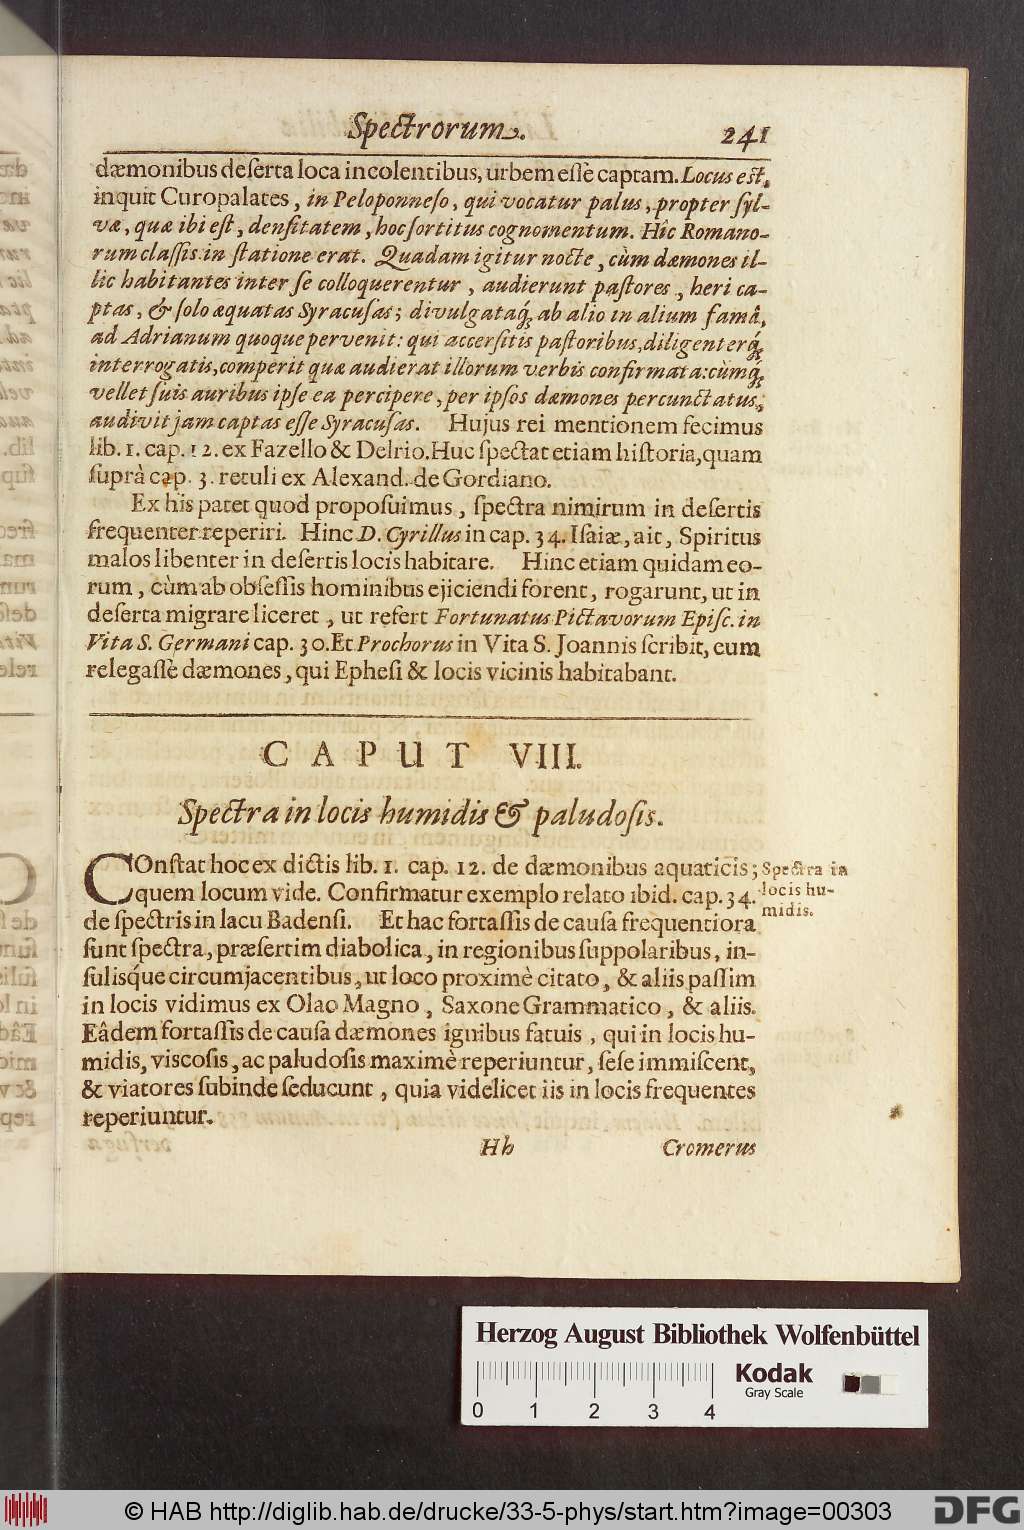 Spectrorum. 241
dæmonibus deſerta loca incolentibus, urbem eſſè captam. Locus eſt,
inquit Curopalates, in Peloponneſo, qui vocatur palus, propter ſyl-
væ, quæ ibi eſt, denſitatem, hoc ſortitus cognomentum. Hîc Romano-
rum claſſis in ſtatione erat. Quadam igitur nocte, cùm dæmones il-
lic habitantes inter ſe colloquerentur, audierunt paſtores, heri ca-
ptas, & ſolo æquatas Syracuſas; divulgataq́; ab alio in alium famâ,
ad Adrianum quoque pervenit: qui accerſitis paſtoribus, diligenterq́;
interrogatis, comperit quæ audierat illorum verbis confirmata: cùmq́;
vellet ſuis auribus ipſe ea percipere, per ipſos dæmones percunctatus,
audivit jam captas eſſe Syracuſas. Hujus rei mentionem fecimus
lib. 1. cap. 12. ex Fazello & Delrio. Huc ſpectat etiam hiſtoria, quam
ſuprà cap. 3. retuli ex Alexand. de Gordiano.
Ex his patet quod propoſuimus, ſpectra nimirum in deſertis
frequenter reperiri. Hinc D. Cyrillus in cap. 34. Iſaiæ, ait, Spiritus
malos libenter in deſertis locis habitare. Hinc etiam quidam eo-
rum, cùm ab obſeſſis hominibus ejiciendi forent, rogarunt, ut in
deſerta migrare liceret, ut refert Fortunatus Pictavorum Epiſc. in
Vita S. Germani cap. 30. Et Prochorus in Vita S. Joannis ſcribit, eum
relegaſſè dæmones, qui Epheſi & locis vicinis habitabant.
CAPUT VIII.
Spectra in locis humidis & paludoſis.
COnſtat hoc ex dictis lib. 1. cap. 12. de dæmonibus aquaticis;
quem locum vide. Confirmatur exemplo relato ibid. cap. 34.
de ſpectris in lacu Badenſi. Et hac fortaſſis de cauſa frequentiora
ſunt ſpectra, præſertim diabolica, in regionibus ſuppolaribus, in-
ſulisq́ue circumjacentibus, ut loco proximè citato, & aliis paſſim
in locis vidimus ex Olao Magno, Saxone Grammatico, & aliis.
Eâdem fortaſſis de cauſa dæmones ignibus fatuis, qui in locis hu-
midis, viscoſis, ac paludoſis maximè reperiuntur, ſeſe immiſcent,
& viatores ſubinde ſeducunt, quia videlicet iis in locis frequentes
reperiuntur.
Spectra in
locis hu-
midis.
Hh Cromerus
Herzog August Bibliothek Wolfenbüttel
Kodak
Gray Scale
0 1 2 3 4
© HAB http://diglib.hab.de/drucke/33-5-phys/start.htm?image=00303
DFG